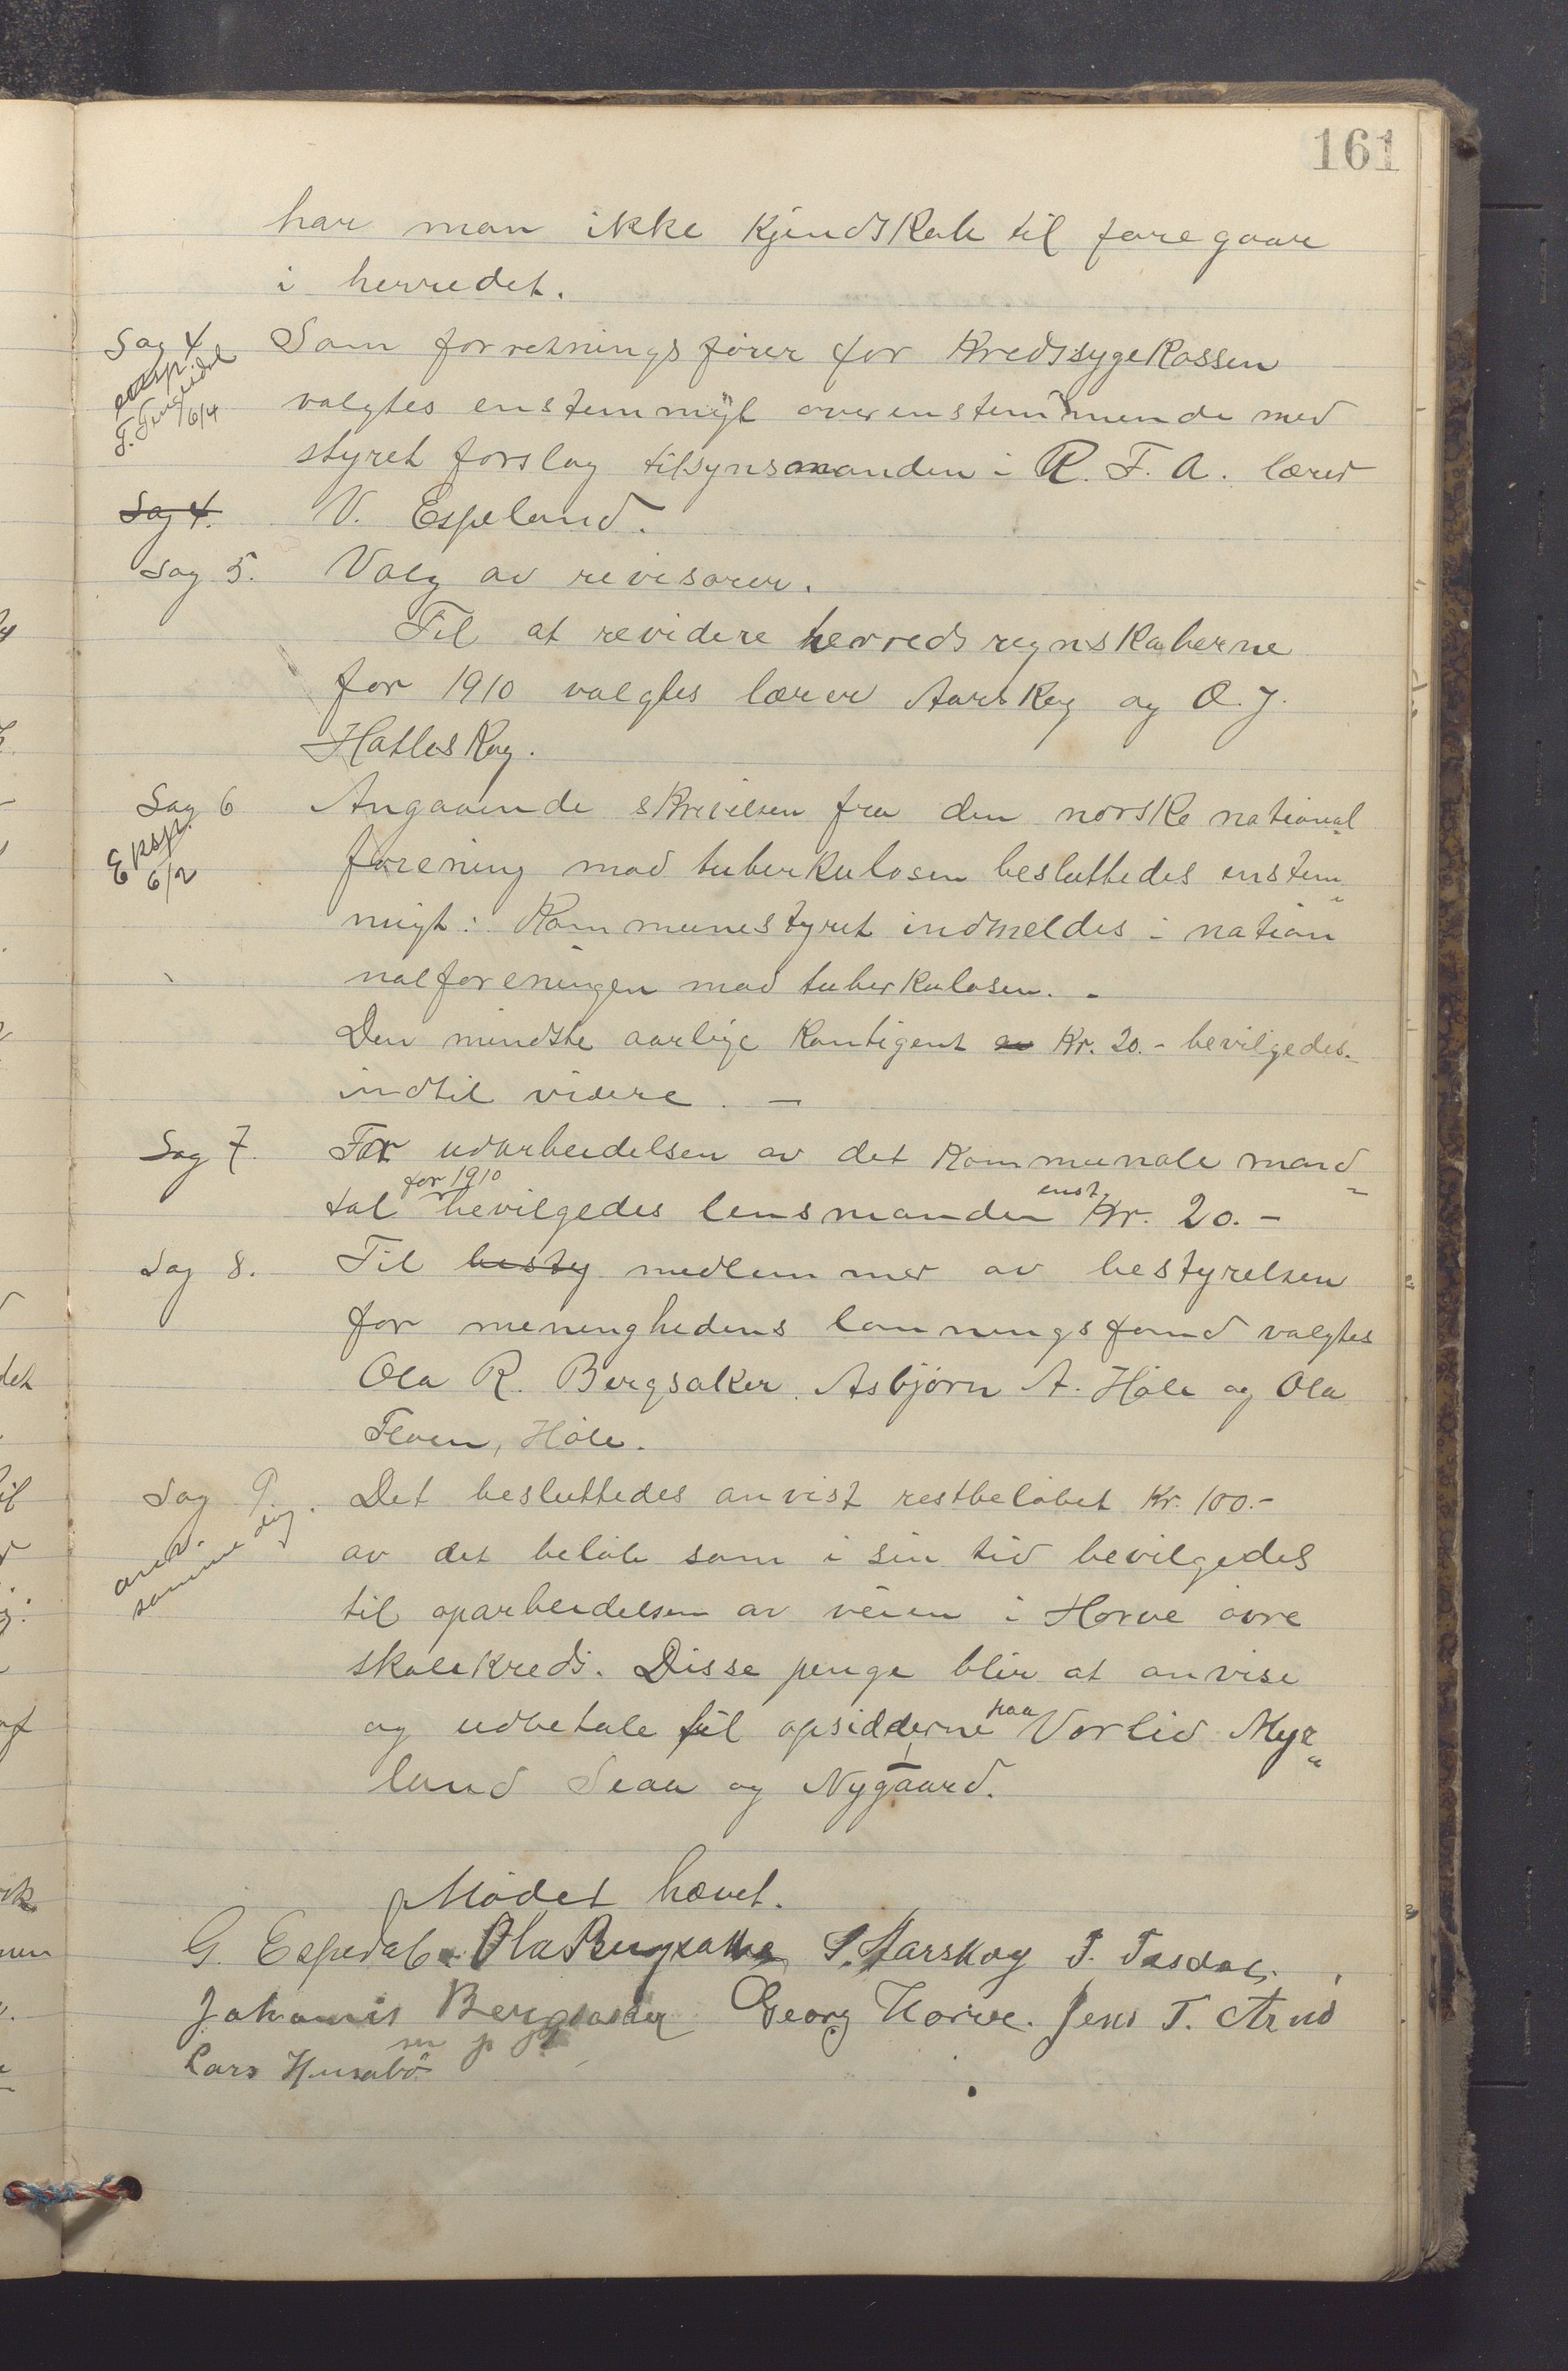 161
har man ikke kjendskab til foregaar
i herredet.
Sag 4 Som forretningsfører for kredssygekassen
exsp.
6/4
valgtes enstemmigt overenstemmende med
styret forslag tilsynsmanden i R. T. A. lærer
Sag 4. V. Espeland.
Sag 5. Valg av revisorer.
Til at revidere herredsregnskaberne
for 1910 valgtes lærer Aarskog og O. J.
Hatleskog.
Sag 6 Angaaende skrivelsen fra den norske national
Eksp.
6/2
forening mod tuberkulosen besluttedes enstem
migt: Kommunestyret indmeldes i nation
nalforeningen mod tuberkulosen. -
Den mindste aarlige kontigent av Kr. 20.- bevilgedes
indtil videre. -
Sag 7. For udarbeidelsen av det kommunale mand
tal for 1910 bevilgedes lensmanden enst. Kr. 20.-
Sag 8. Til besty medlemmer av bestyrelsen
for menenghedens lønningsfond valgtes
Ola R. Bergsaker, Asbjørn A. Høle og Ola
Tloen, Høle.
Sag 9. Det besluttedes anvist restbeløbet Kr. 100.-
anv. samme dag
av det beløb som i sin tid bevilgedes
til oparbeidelsen av veien i Horve øvre
skolekreds. Disse penge blir at anvise
og udbetale til opsidderne paa Vorlid Myr
land Seaa og Nygaard.
Mødet hævet.
G. Espedal. Ola Bergsaker S. Aarskog T. Tasdal.
Johannis Bergsaker Georg Horve. Jens T. Arud
Lars Husabø